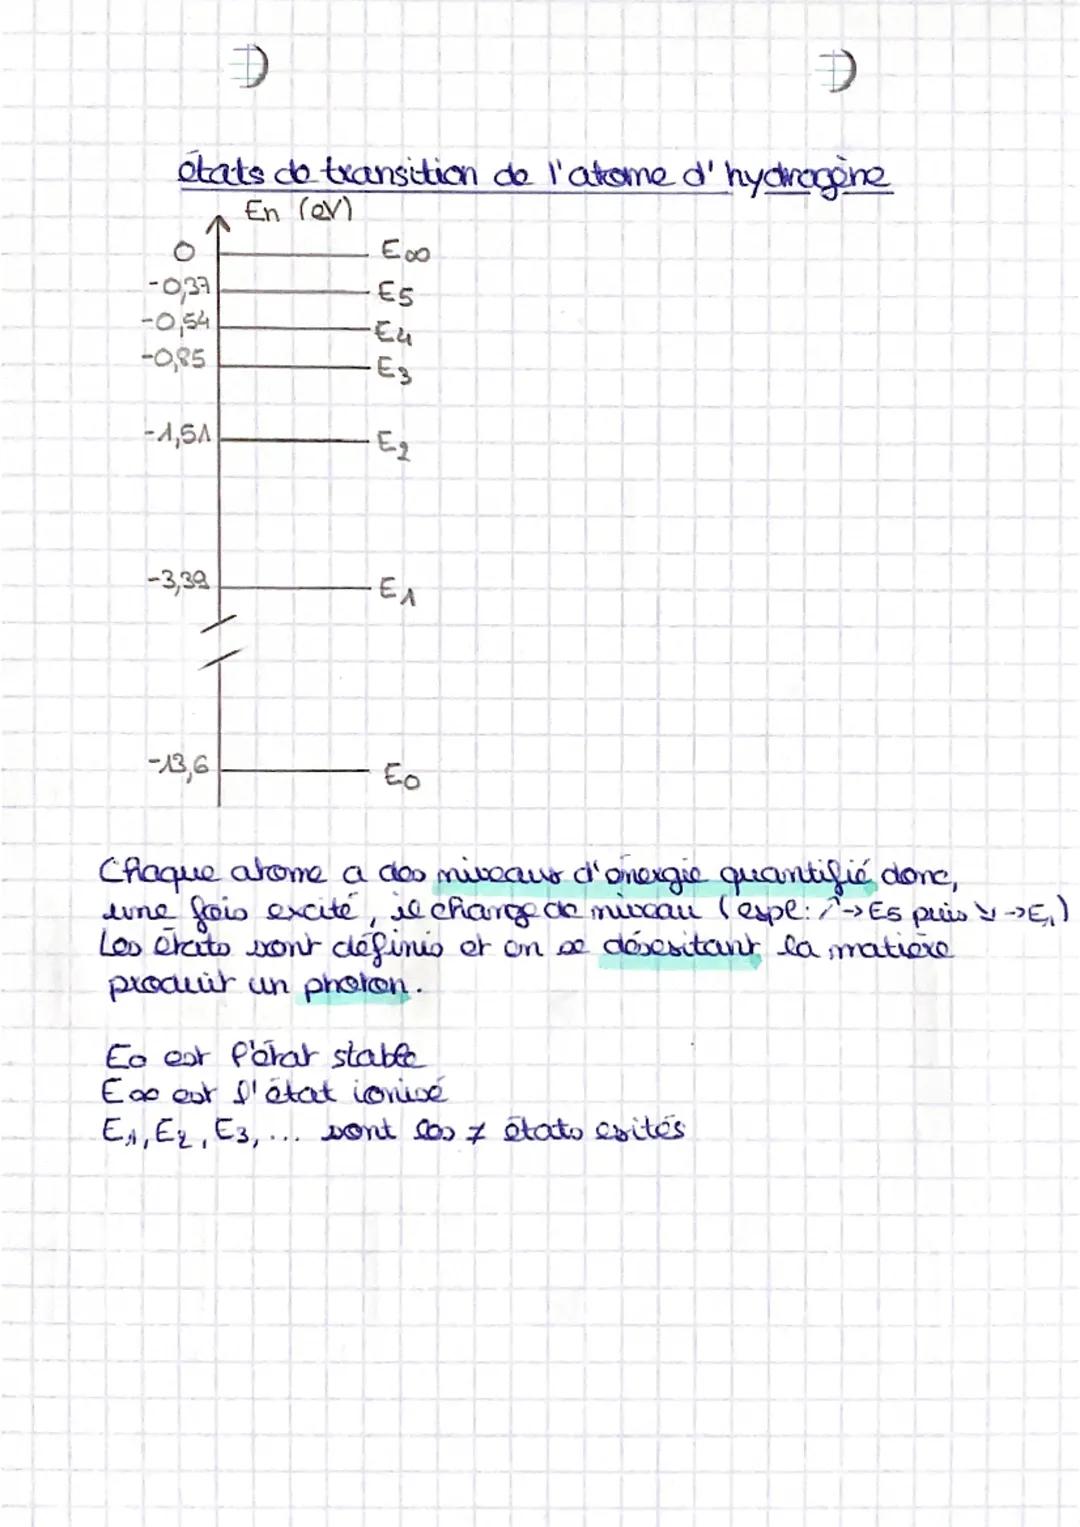 états de transition de l'atome d'hydrogène
En (eV)
0 E∞
-0,37 E5
-0,54 E4
-0,85 E3
-1,51 E2
-3,39 E1
-13,6 E0
Chaque atome a des niveaux d'énergie quantifié donc,
une fois excité, il change de niveau (expl: ↗→E5 puis ↘→E1)
Les états sont définis et en se désexitant la matière
produit un photon.
E0 est l'état stable
E∞ est l'état ionisé
E1, E2, E3, ... sont les ≠ états exités